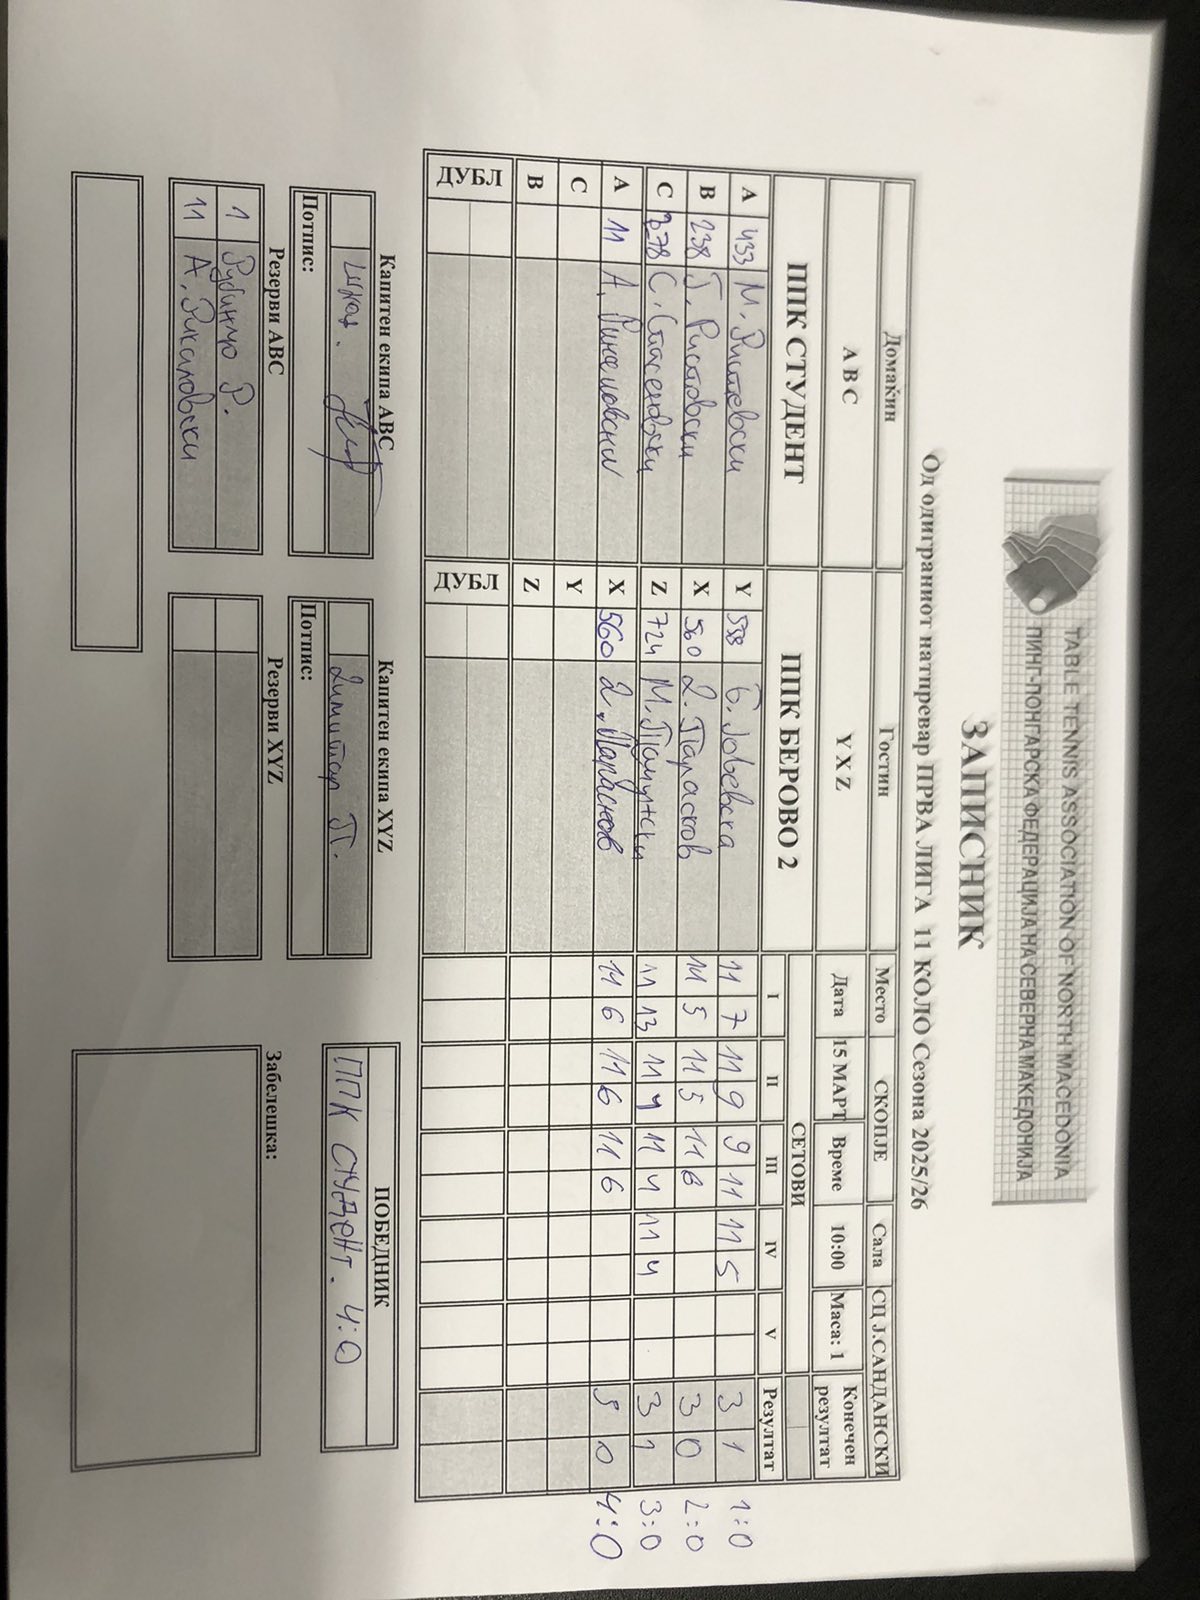 TABLE TENNIS ASSOCIATION OF NORTH MACEDONIA
ПИНГ-ПОНГАРСКА ФЕДЕРАЦИЈА НА СЕВЕРНА МАКЕДОНИЈА
ЗАПИСНИК
Од одиграниот натпревар ПРВА ЛИГА 11 КОЛО Сезона 2025/26
Домаќин Гостин Место СКОПЈЕ Сала СЦ Ј.САНДАНСКИ
A B C Y X Z Дата 15 МАРТ Време 10:00 Маса: 1 Конечен резултат
ППК СТУДЕНТ ППК БЕРОВО 2 СЕТОВИ
I II III IV V Резултат
A 433 М. Y 598 Б. 11 7 11 9 9 11 11 5 3 1 1:0
B 238 Г. Ристовски X 560 Д. Парасков 11 5 11 5 11 8 3 0 2:0
C 378 С. Z 724 М. 11 13 11 4 11 4 11 4 3 1 3:0
A 11 А. X 560 Д. Парасков 11 6 11 6 11 6 3 0 4:0
C Y
B Z
ДУБЛ ДУБЛ
Капитен екипа ABC Капитен екипа XYZ ПОБЕДНИК
Димитар П. ППК СТУДЕНТ. 4:0
Потпис: Потпис:
Резерви ABC Резерви XYZ Забелешка:
1 Р.
11 А.